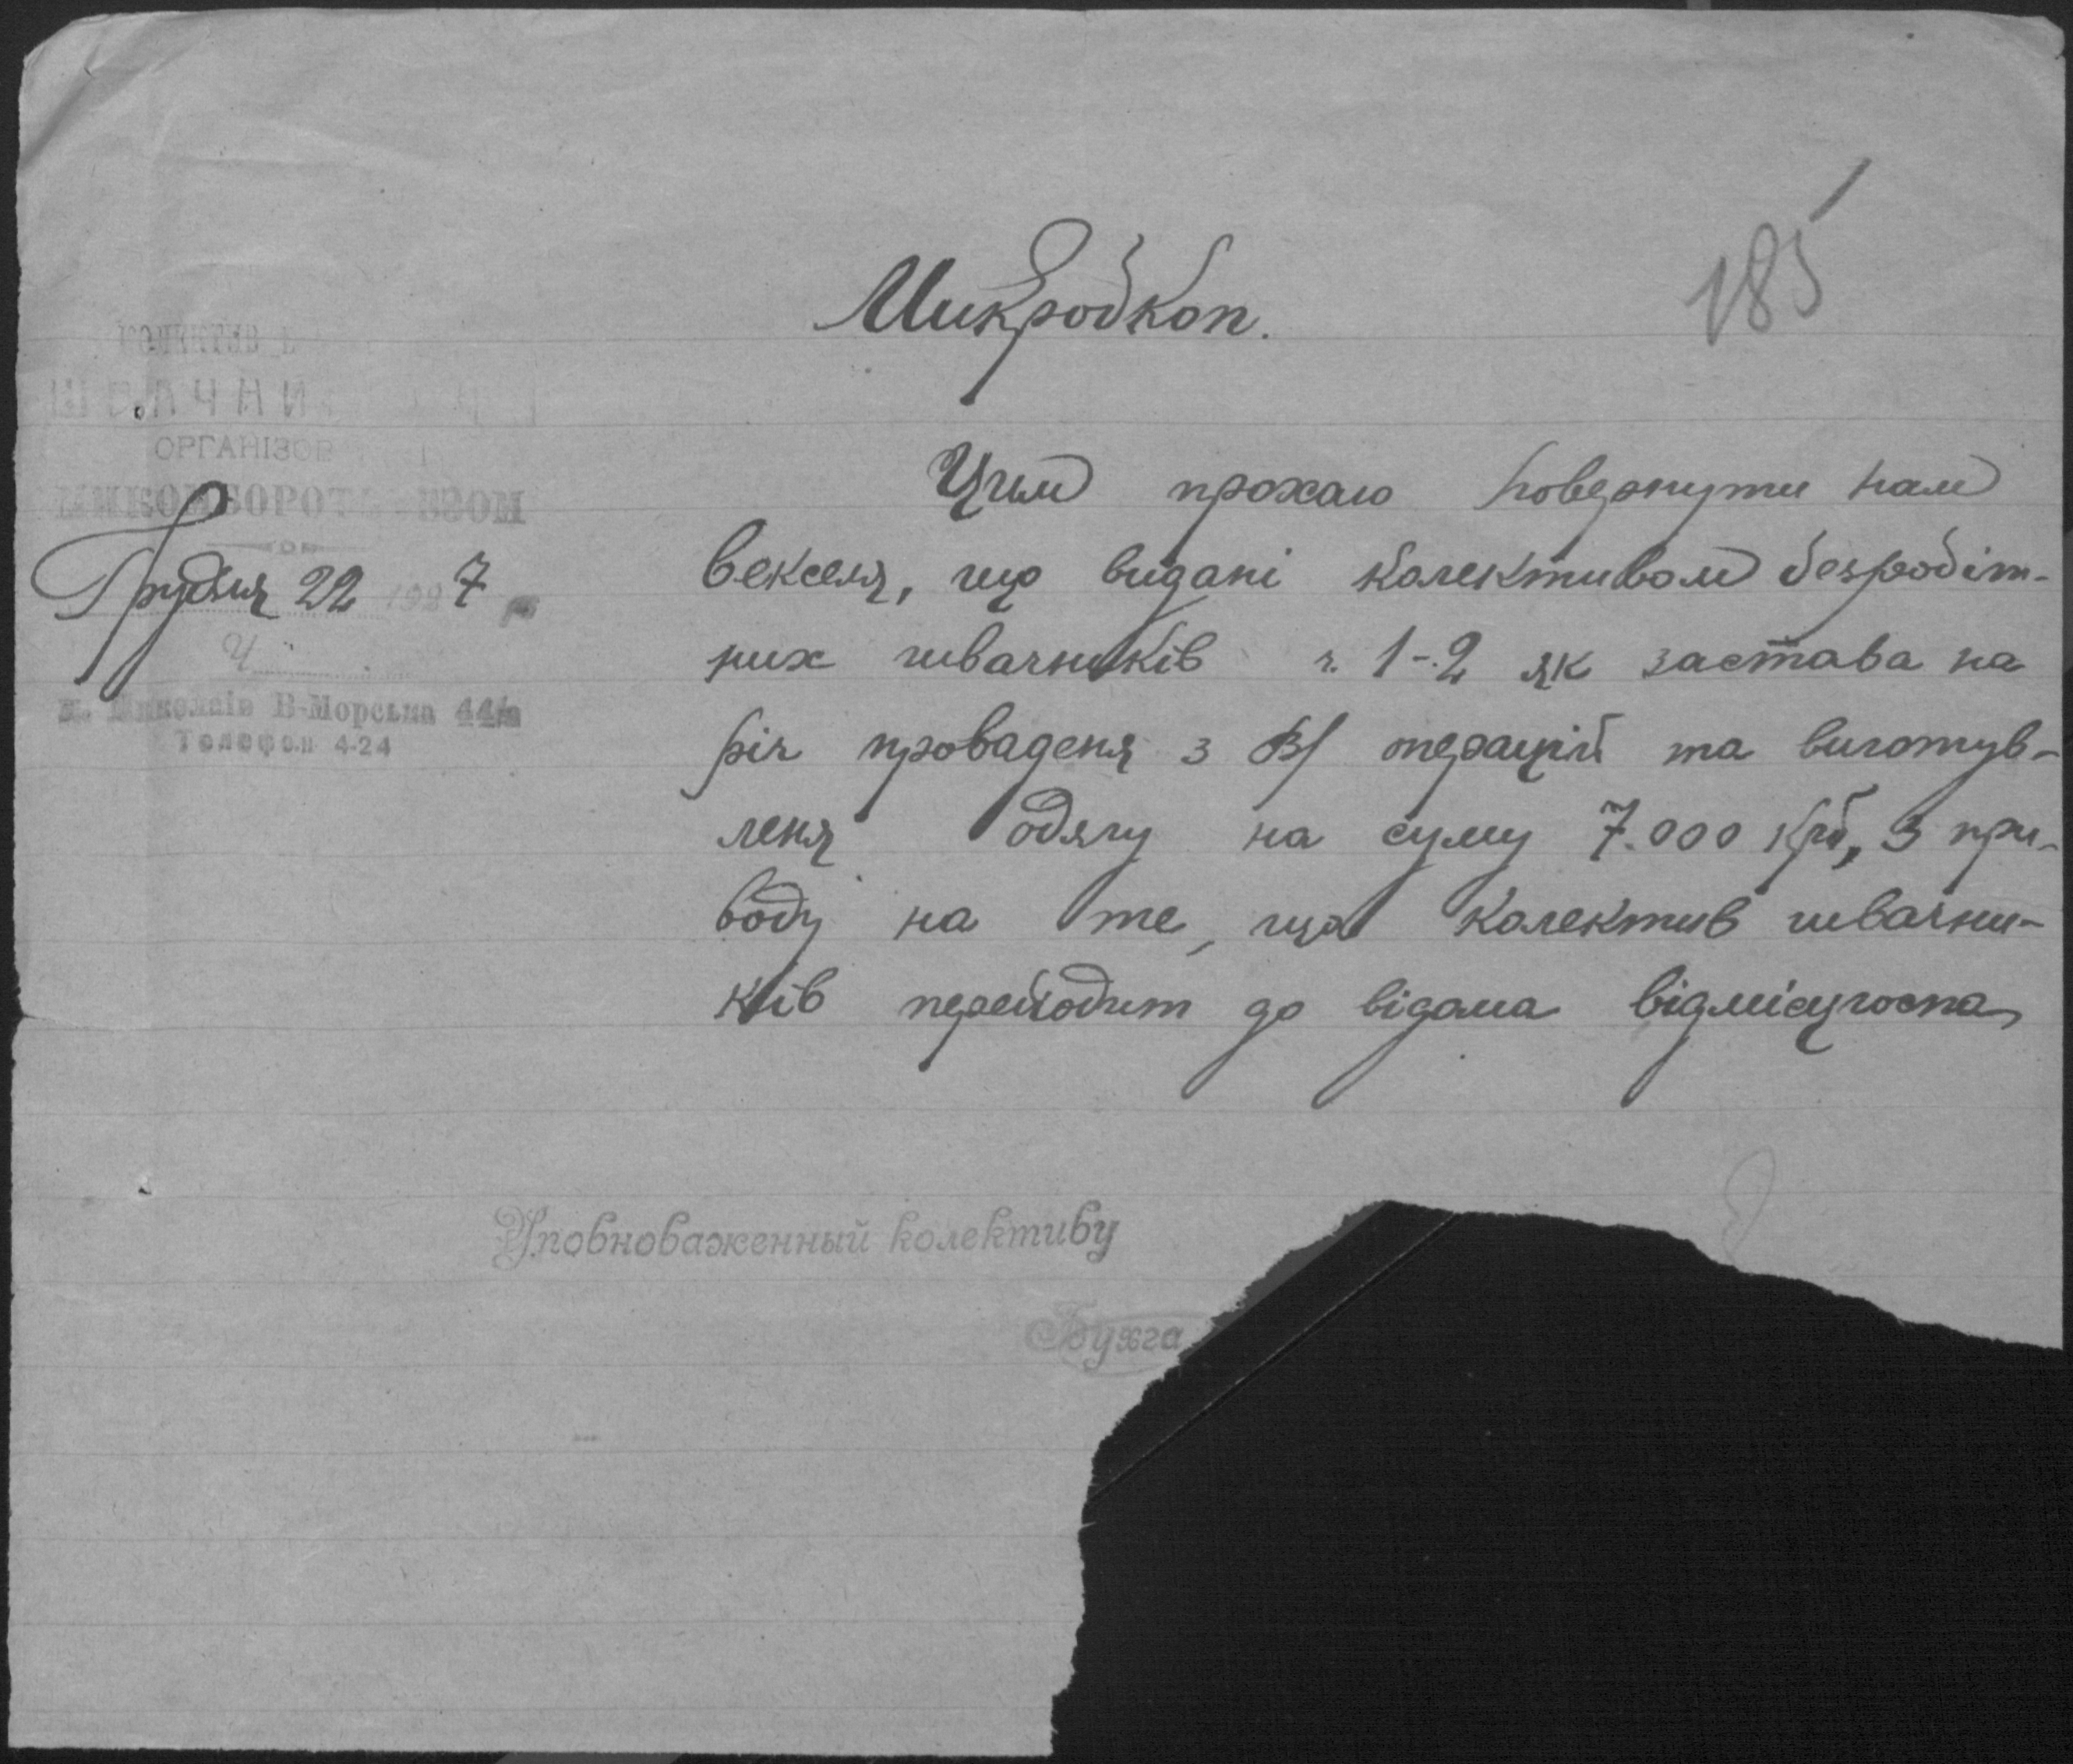 185
Микробкоп.
ШВАЧНИ
ОРГАНІЗОВ
Грудня 22 1927 р
Ч.
м. Миколаів В-Морська 44/а
Телефон 4-24
Цим прохаю повернути нам
векселя, що видані колективом безробіт-
них швачників ч. 1-2 як застава на
річ проваденя з В/ операцій та виготув-
леня одягу на суму 7.000 крб, з при-
воду на те, що колектив швачни-
ків переходит до відома відмісцгоспа
Уповноваженный колективу
Бухга